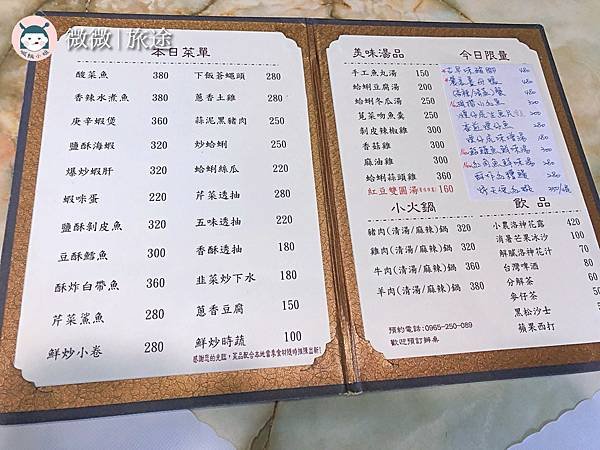 微微|旅途
本日菜單
酸菜魚 380
香辣水煮魚 380
庚辛蝦煲 360
鹽酥海蝦 320
爆炒蝦肝 320
蝦味蛋 220
鹽酥剝皮魚 320
豆酥鱈魚 320
酥炸白帶魚 360
芹菜鯊魚 320
鮮炒小卷 280
下飯蒼蠅頭 280
蔥香土雞 280
蒜泥黑豬肉 280
炒蛤蜊 280
蛤蜊絲瓜 220
芹菜透抽 280
五味透抽 220
香酥透抽 280
韭菜炒下水 180
蔥香豆腐 150
鮮炒時蔬 100
美味湯品
手工魚丸湯 150
蛤蜊豆腐湯 200
蛤蜊冬瓜湯 250
莧菜吻魚羹 250
剝皮辣椒雞 350
香菇雞 350
麻油雞 350
蛤蜊蒜頭雞 360
紅豆雙圓湯 160
今日限量
小火鍋
豬肉(清湯/麻辣)鍋 320
雞肉(清湯/麻辣)鍋 320
牛肉(清湯/麻辣)鍋 360
羊肉(清湯/麻辣)鍋 380
預約電話:0965-250-089
歡迎預訂辦桌
飲品
小農洛神花露 420
消暑芒果冰沙 100
解膩洛神花汁 70
台灣啤酒 80
分解茶 60
麥仔茶
黑松沙士
蘋果西打